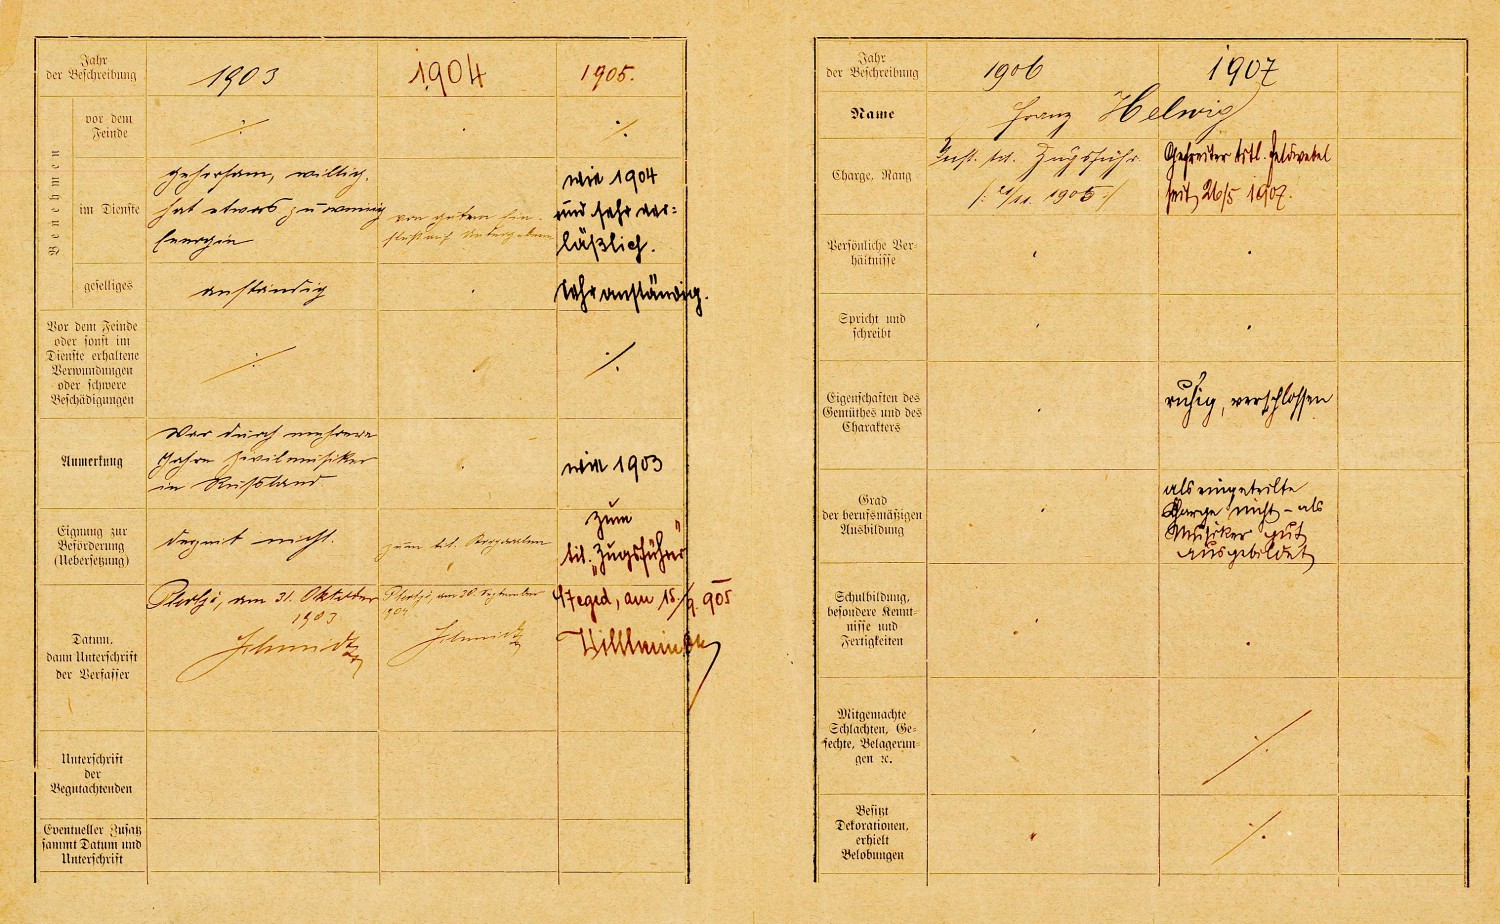 Jahr
der Beschreibung
1903
1904
1905.
Benehmen
vor dem
Feinde
im Dienste
gehorsam, willig,
hat etwas zu wenig
Energie
von gutem Ein-
fluß auf Untergebene
wie 1904
und sehr ver-
läßlich.
geselliges
anständig
sehr anständig.
Vor dem Feinde
oder sonst im
Dienste erhaltene
Verwundungen
oder schwere
Beschädigungen
Anmerkung
War durch mehrere
Jahre Zivilmusiker
in Russland
wie 1903
Eignung zur
Beförderung
(Uebersetzung)
derzeit nicht.
zum tit. Korporalen
zum
tit. "Zugsführer"
Datum,
dann Unterschrift
der Verfasser
am 31. Oktober
1903
Schmidt
am 30. September
1904
Schmidt
Szeged, am 15./9. 905
Unterschrift
der
Begutachtenden
Eventueller Zusatz
sammt Datum und
Unterschrift
Jahr
der Beschreibung
1906
1907
Name
Franz Helwig
Charge, Rang
Inft. tit. Zugsführ.
1905
Gefreiter tit. Feldwebel
seit 26/5 1907.
Persönliche Ver-
hältnisse
Spricht und
schreibt
Eigenschaften des
Gemüthes und des
Charakters
ruhig, verschlossen
Grad
der berufsmäßigen
Ausbildung
als eingeteilte
Charge nicht – als
Musiker gut
ausgebildet
Schulbildung,
besondere Kennt-
nisse und
Fertigkeiten
Mitgemachte
Schlachten, Ge-
fechte, Belagerun-
gen ꝛc.
Besitzt
Dekorationen,
erhielt
Belobungen